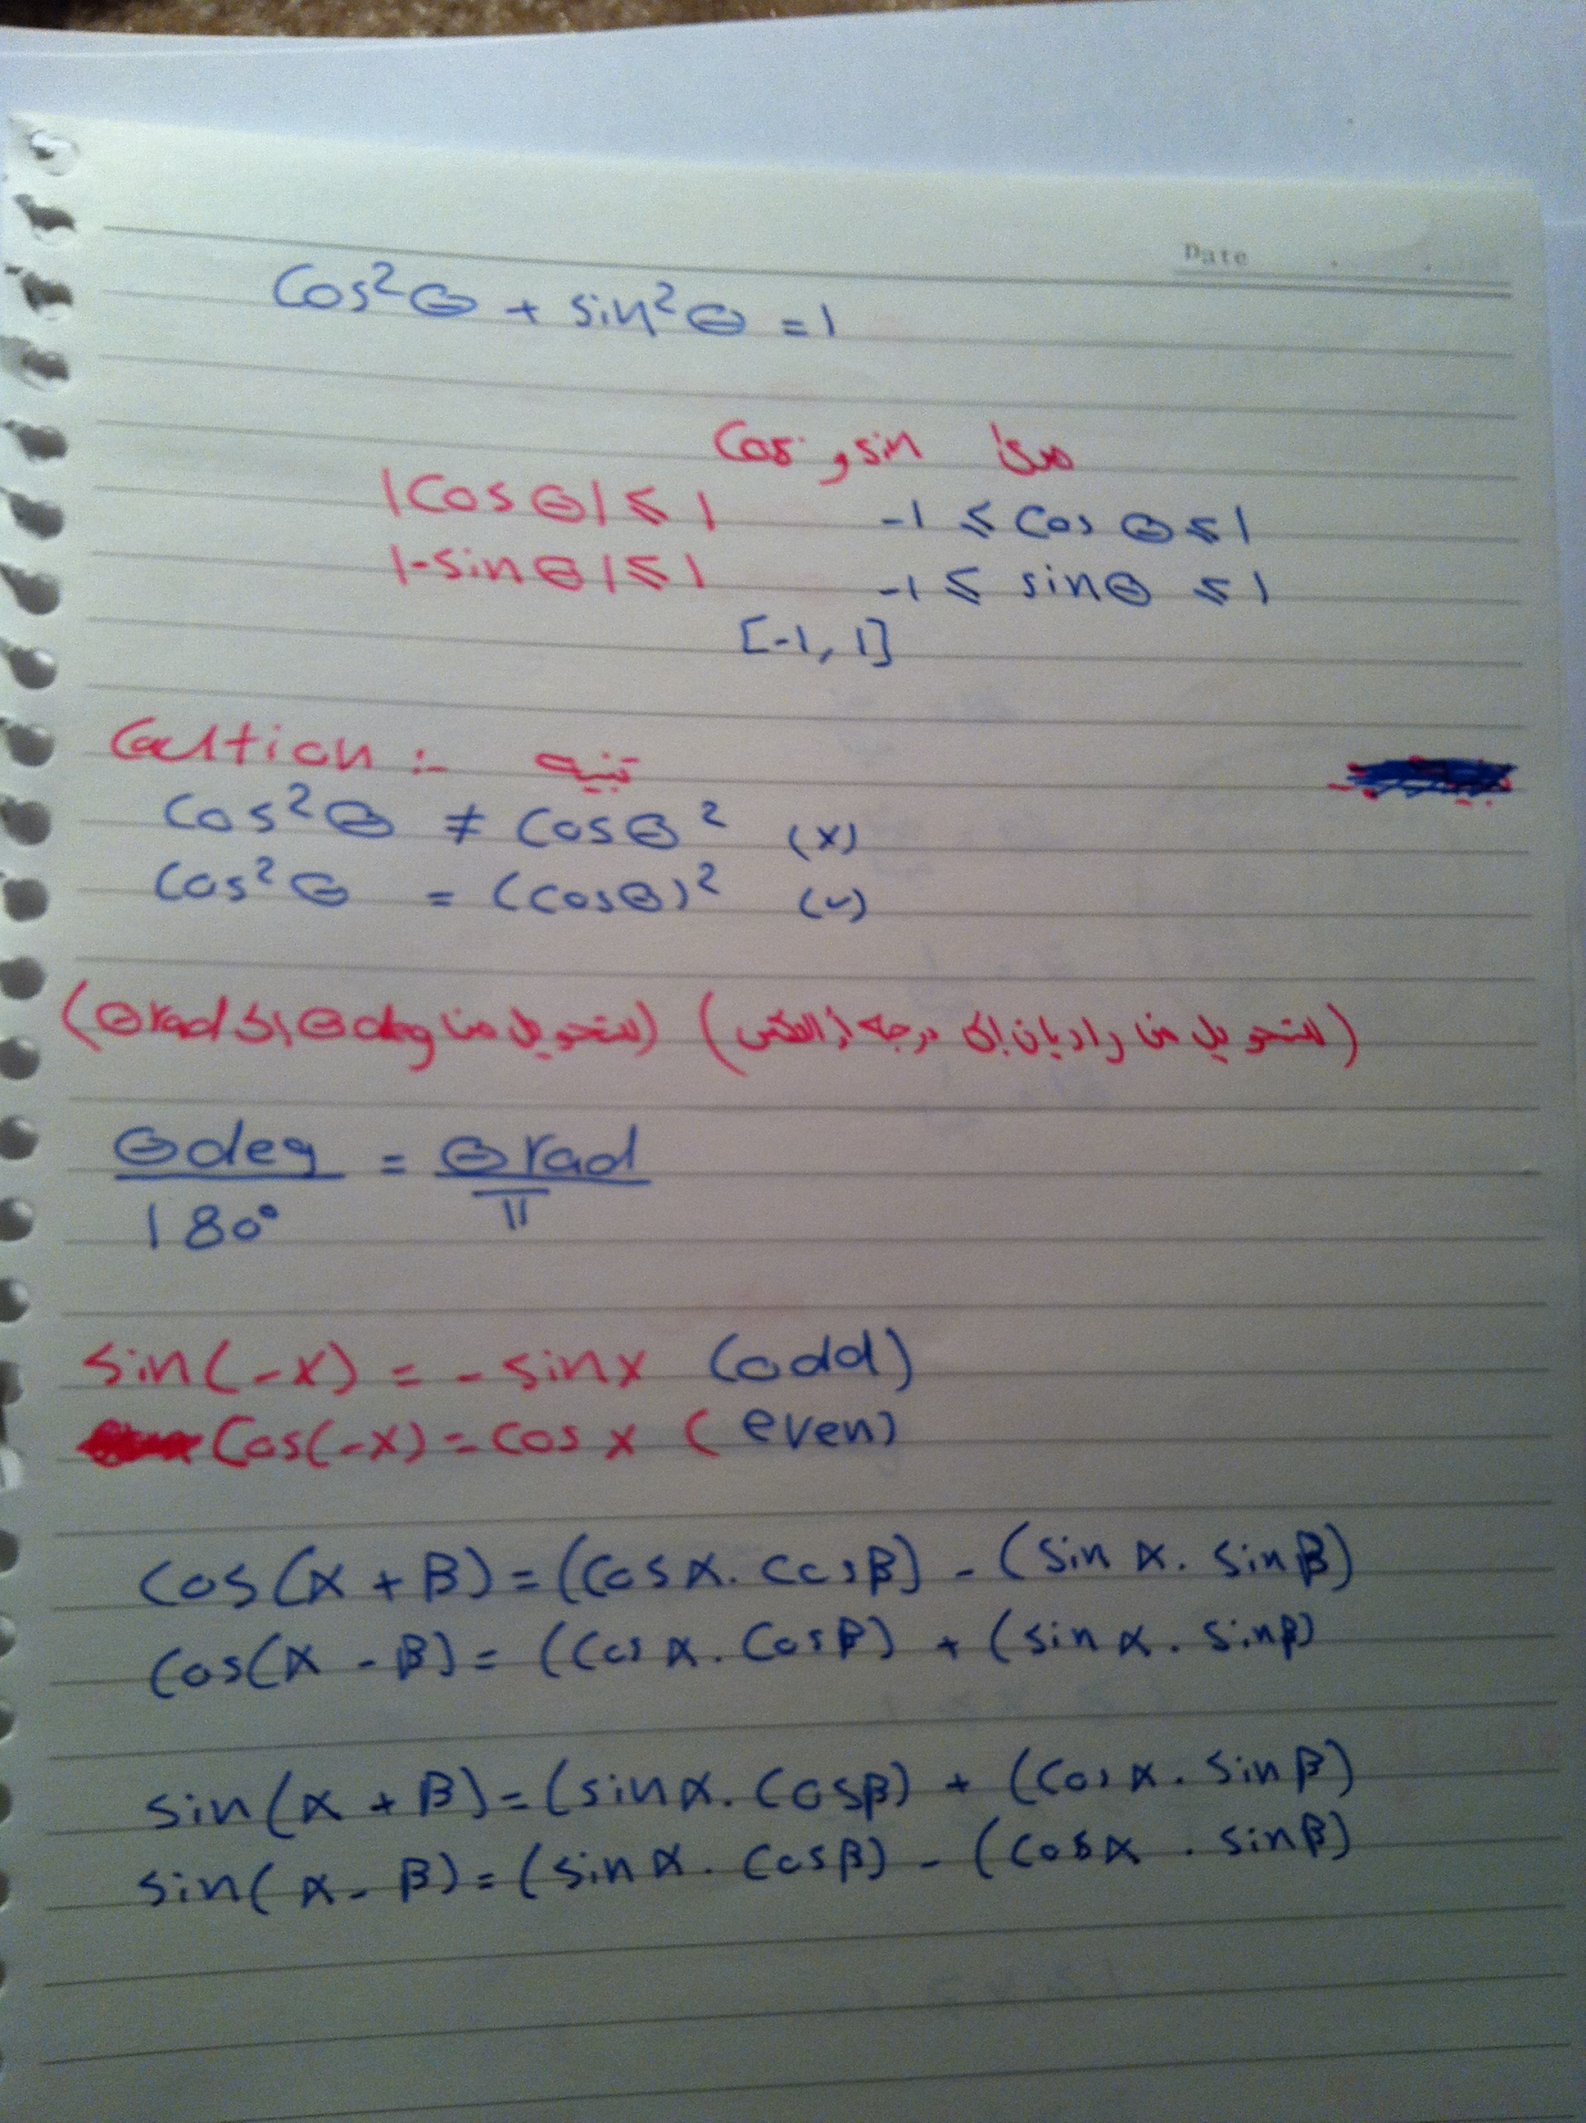 Date
Cos²θ + sin²θ = 1
مدى sin و Cos
|Cos θ| ≤ 1     -1 ≤ Cos θ ≤ 1
|-sin θ| ≤ 1     -1 ≤ sin θ ≤ 1
[-1, 1]
Caution :- تنبيه
Cos²θ ≠ Cosθ² (x)
Cos²θ = (Cosθ)² (✓)
(للتحويل من راديان إلى درجة أو العكس) (للتحويل من θdeg إلى θrad)
θdeg/180° = θrad/π
sin(-x) = - sinx (odd)
Cos(-x) = Cos x (even)
Cos(α + β) = (Cosα . Cosβ) - (sin α . sinβ)
Cos(α - β) = (Cos α . Cosβ) + (sin α . sinβ)
sin(α + β) = (sinα . Cosβ) + (Cosα . sinβ)
sin(α - β) = (sinα . Cosβ) - (Cosα . sinβ)